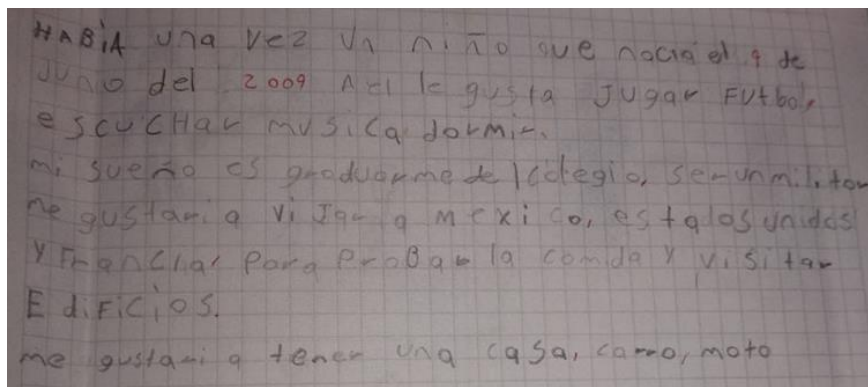 HABÍA una vez un niño que nacía el 9 de
Juno del 2009 A el le gusta Jugar Futbol,
escucHar musica dormir.
mi sueño es graduarme del colegio, ser un militar
me gustaria viJar a mexico, estados unidos
y Francha, Para ProBar la comida y visitar
EdiFicios.
me gustaria tener una casa, carro, moto